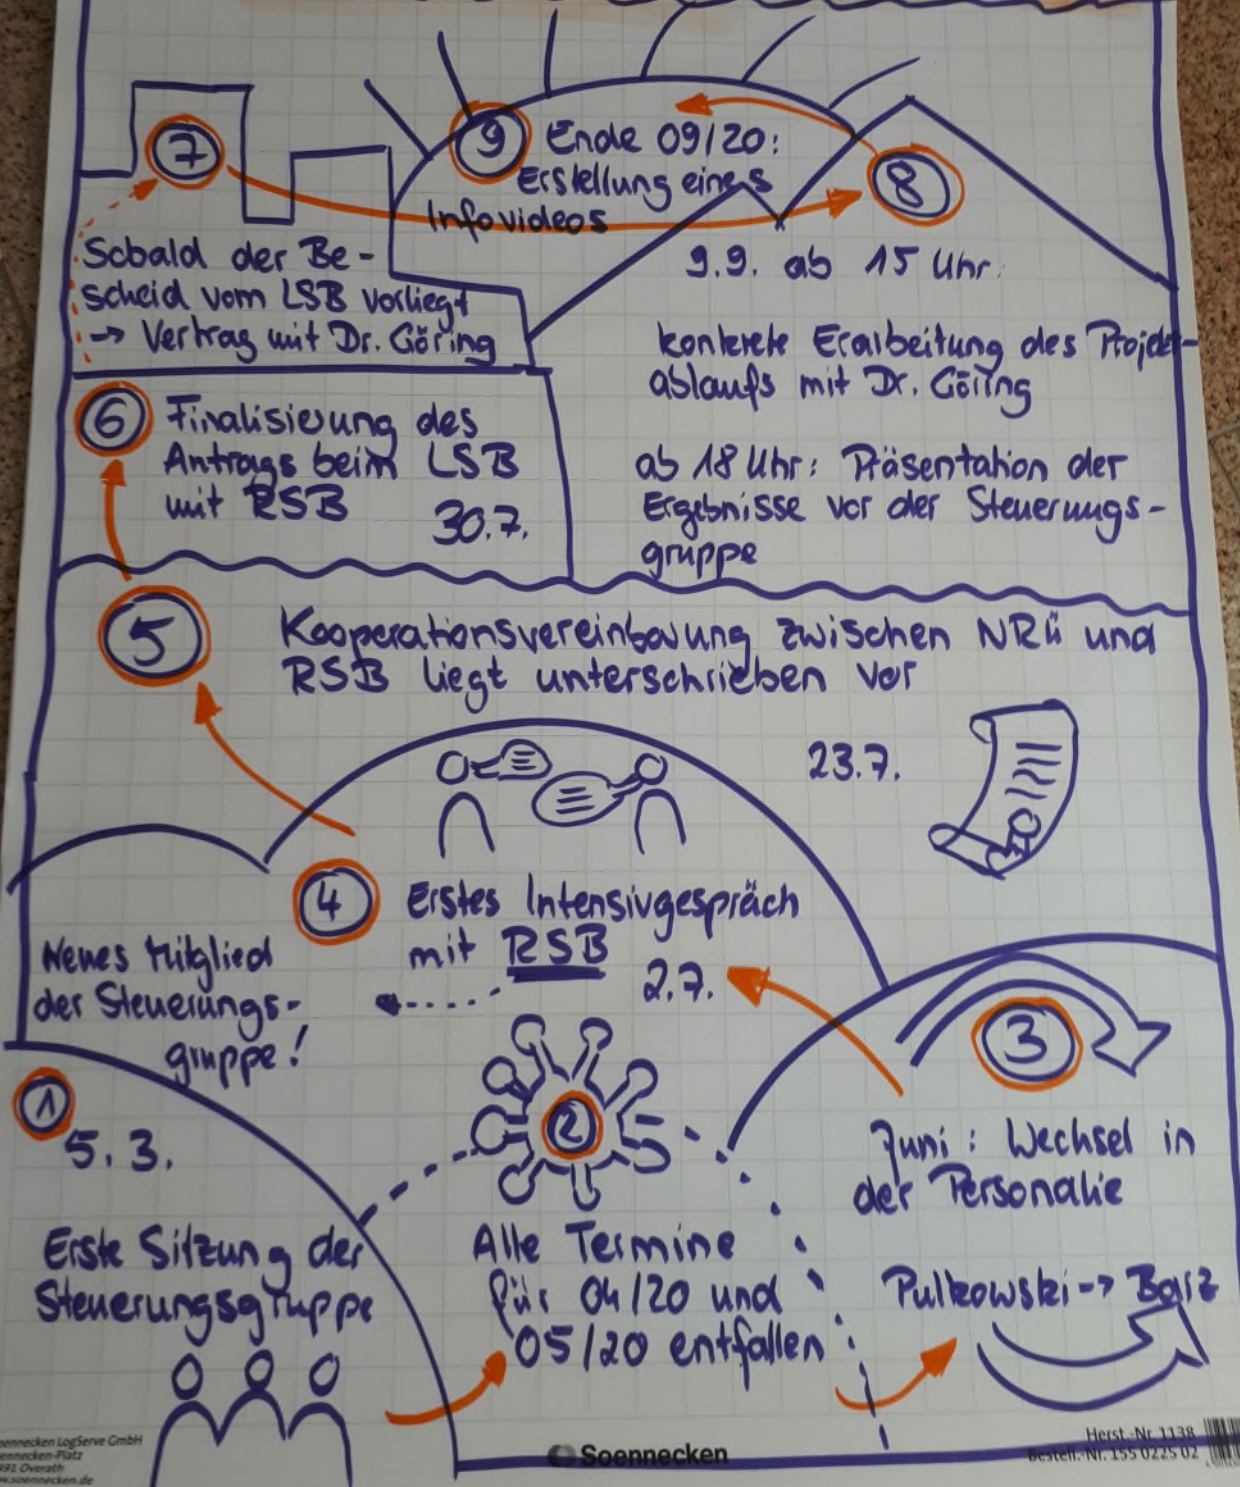 7
9
Ende 09/20:
Erstellung eines
Infovideos
8
Sobald der Be-
scheid vom LSB vorliegt
→ Vertrag mit Dr. Göring
9.9. ab 15 Uhr:
konkrete Erarbeitung des Projekt-
ablaufs mit Dr. Göring
ab 18 Uhr: Präsentation der
Ergebnisse vor der Steuerungs-
gruppe
6
Finalisierung des
Antrags beim LSB
mit RSB
30.7.
5
Kooperationsvereinbarung zwischen NRÜ und
RSB liegt unterschrieben vor
23.7.
4
Erstes Intensivgespräch
mit RSB
2.7.
Neues Mitglied
der Steuerungs-
gruppe!
3
Juni: Wechsel in
der Personalie
Pulkowski → Barz
2
Alle Termine
für 04/20 und
05/20 entfallen
1
5.3.
Erste Sitzung der
Steuerungsgruppe
Soennecken LogServe GmbH
Soennecken-Platz
Overath
www.soennecken.de
Soennecken
Herst.-Nr. 1138
Bestell.-Nr. 155 0225 02